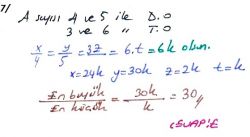 7/ A sayısı 4 ve 5 ile D.O
3 ve 6 " T.O
x/4 = y/5 = 3z = 6.t = 6k olsun.
x=24k y=30k z=2k t=k
En büyük / En küçük = 30k / k = 30//
CEVAP: E